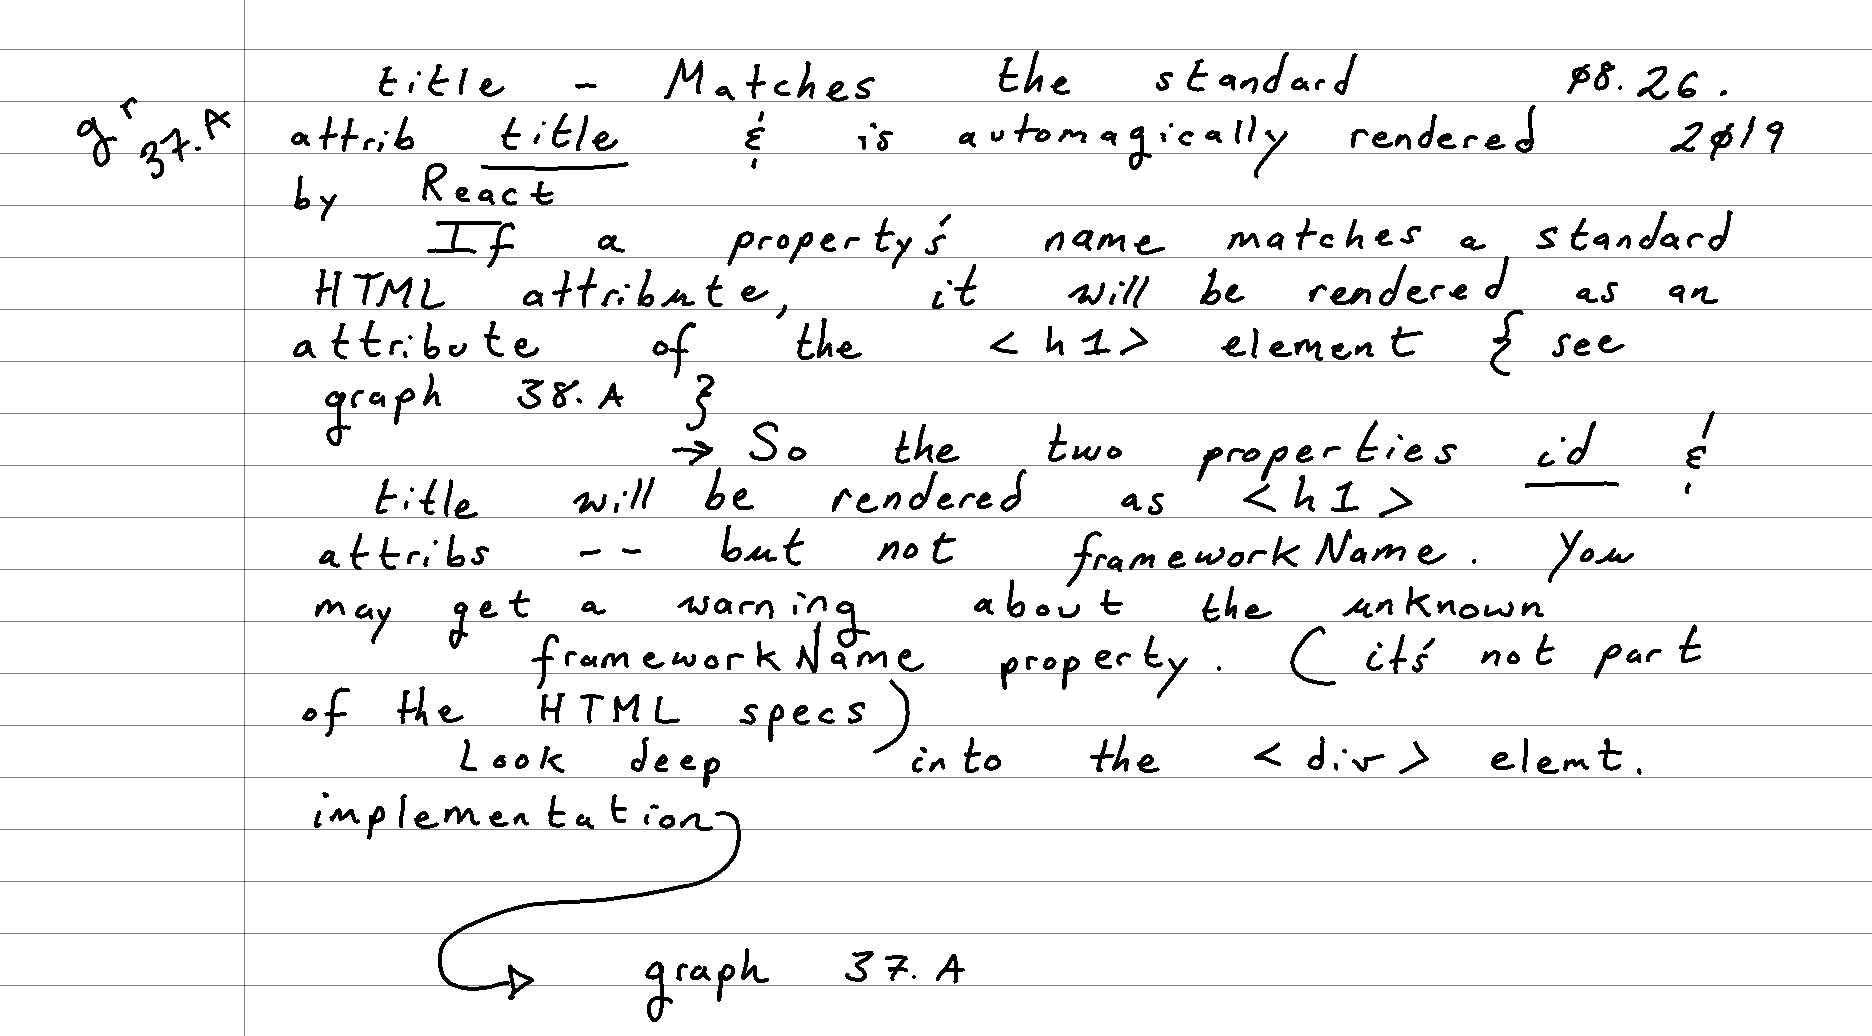 title - Matches the standard 08.26.
gr 37.A
attrib title & is automagically rendered 2019
by React
If a property's name matches a standard
HTML attribute, it will be rendered as an
attribute of the <h1> element { see
graph 38.A }
→ So the two properties id &
title will be rendered as <h1>
attribs -- but not frameworkName. You
may get a warning about the unknown
frameworkName property. ( it's not part
of the HTML specs)
Look deep into the <div> elemt.
implementation
graph 37.A